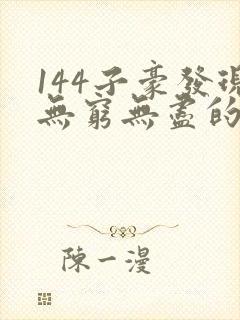 144子豪發現
無窮無盡的
陳一漫